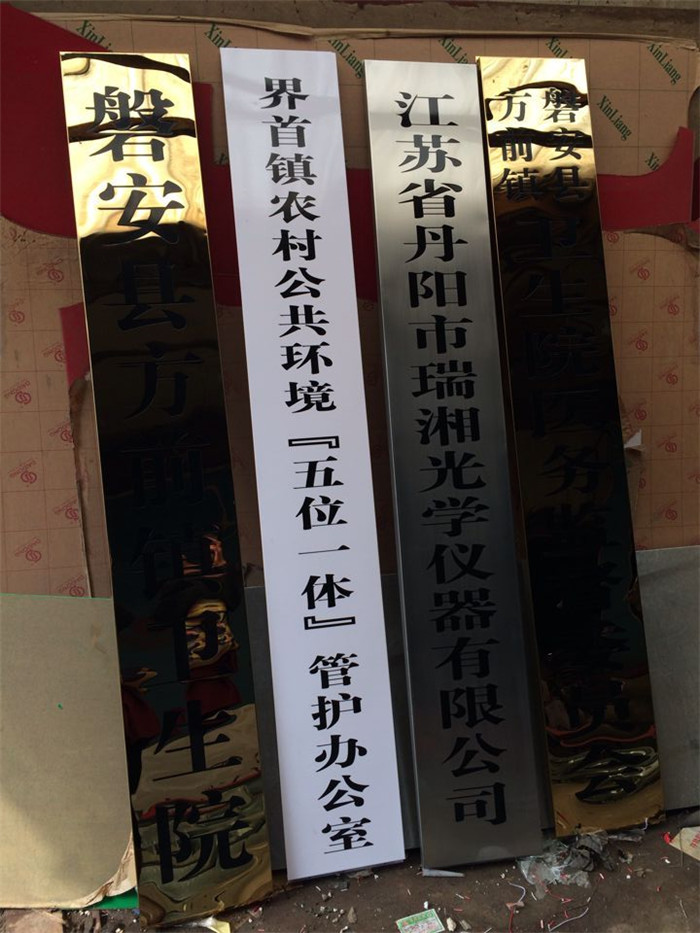 磐安县方前镇卫生院
界首镇农村公共环境『五位一体』管护办公室
江苏省丹阳市瑞湘光学仪器有限公司
磐安县
方前镇
卫生院医务监督委员会
XinLiang
XinLiang
XinLiang
XinLiang
XinLiang
XinLiang